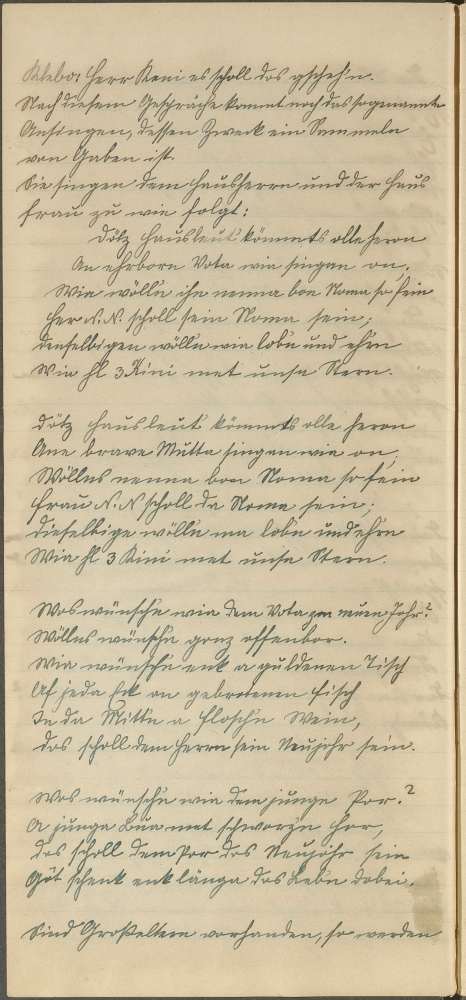 Klebo: Herr Keni es scholl dos gscheh'n.
Nach diesem Gespräche kommt noch das sogenannte
Ansingen, dessen Zweck ein Sammeln
von Gaben ist.
Sie singen dem Hausherrn und der Haus
frau zu wie folgt:
Dötz Hausleut' kömmts olle heron
An ehrborn Vota win singan on,
Win wölln ihn nenna ban Noma so fein
Herr N. N. scholl sein Noma sein;
denselbigen wölln win lobn und ehrn
Win hl 3 Kini met unsn Stern.
Dötz Hausleut' kömmts olle heron
Ane brave Mutta singen win on,
Wöllns nenna ban Noma so fein
Frau N. N scholl da Noma sein;
dieselbige wölln ma lobn und ehrn
Win hl 3 Kini met unsn Stern.
Wos wünsch'n win dem Vota zen neuen Johr?
Wöllns wünsch'n gonz offenbor.
Win wünsch'n enk a guldenen Tisch
Af jeda Eck an gebrotenen Fisch
In da Mitt'n a Flosch'n Wein,
dos scholl dem Herrn sein Neujohr sein.
Wos wünsch'n win dem junge Por.?
A junga Bua met schworzn Hor,
dos scholl dem Por dos Neujohr sein
Gott schenk enk länga dos Lebn dobei.
Sind Großeltern vorhanden, so werden